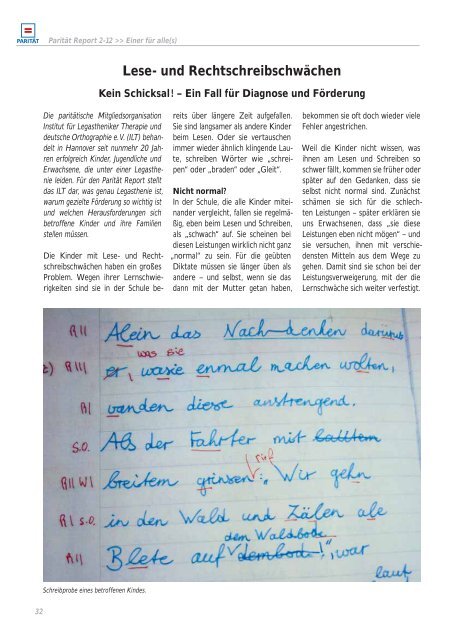 PARITÄT
Parität Report 2-12 >> Einer für alle(s)
Lese- und Rechtschreibschwächen
Kein Schicksal! – Ein Fall für Diagnose und Förderung
Die paritätische Mitgliedsorganisation
Institut für Legastheniker Therapie und
deutsche Orthographie e.V. (ILT) behan-
delt in Hannover seit nunmehr 20 Jah-
ren erfolgreich Kinder, Jugendliche und
Erwachsene, die unter einer Legasthe-
nie leiden. Für den Parität Report stellt
das ILT dar, was genau Legasthenie ist,
warum gezielte Förderung so wichtig ist
und welchen Herausforderungen sich
betroffene Kinder und ihre Familien
stellen müssen.
Die Kinder mit Lese- und Recht-
schreibschwächen haben ein großes
Problem. Wegen ihrer Lernschwie-
rigkeiten sind sie in der Schule be-
reits über längere Zeit aufgefallen.
Sie sind langsamer als andere Kinder
beim Lesen. Oder sie vertauschen
immer wieder ähnlich klingende Lau-
te, schreiben Wörter wie „schrei-
pen“ oder „braden“ oder „Gleit“.
Nicht normal?
In der Schule, die alle Kinder mitei-
nander vergleicht, fallen sie regelmä-
ßig, eben beim Lesen und Schreiben,
als „schwach“ auf. Sie scheinen bei
diesen Leistungen wirklich nicht ganz
„normal“ zu sein. Für die geübten
Diktate müssen sie länger üben als
andere – und selbst, wenn sie das
dann mit der Mutter getan haben,
bekommen sie oft doch wieder viele
Fehler angestrichen.
Weil die Kinder nicht wissen, was
ihnen am Lesen und Schreiben so
schwer fällt, kommen sie früher oder
später auf den Gedanken, dass sie
selbst nicht normal sind. Zunächst
schämen sie sich für die schlech-
ten Leistungen – später erklären sie
uns Erwachsenen, dass „sie diese
Leistungen eben nicht mögen“ – und
sie versuchen, ihnen mit verschie-
densten Mitteln aus dem Wege zu
gehen. Damit sind sie schon bei der
Leistungsverweigerung, mit der die
Lernschwäche sich weiter verfestigt.
R II Alein das Nach-denken darüber
was sie
R III er, wasie enmal machen wolten,
R I vanden diese anstrengend.
S.O. Als der Fahrter mit
rief
R II W I breitem grinsen: „Wir gehn
R I S.O. in den Wald und Zälen ale
dem Waldbode
R II Blete auf dembod!“, war
laut
Schreibprobe eines betroffenen Kindes.
32